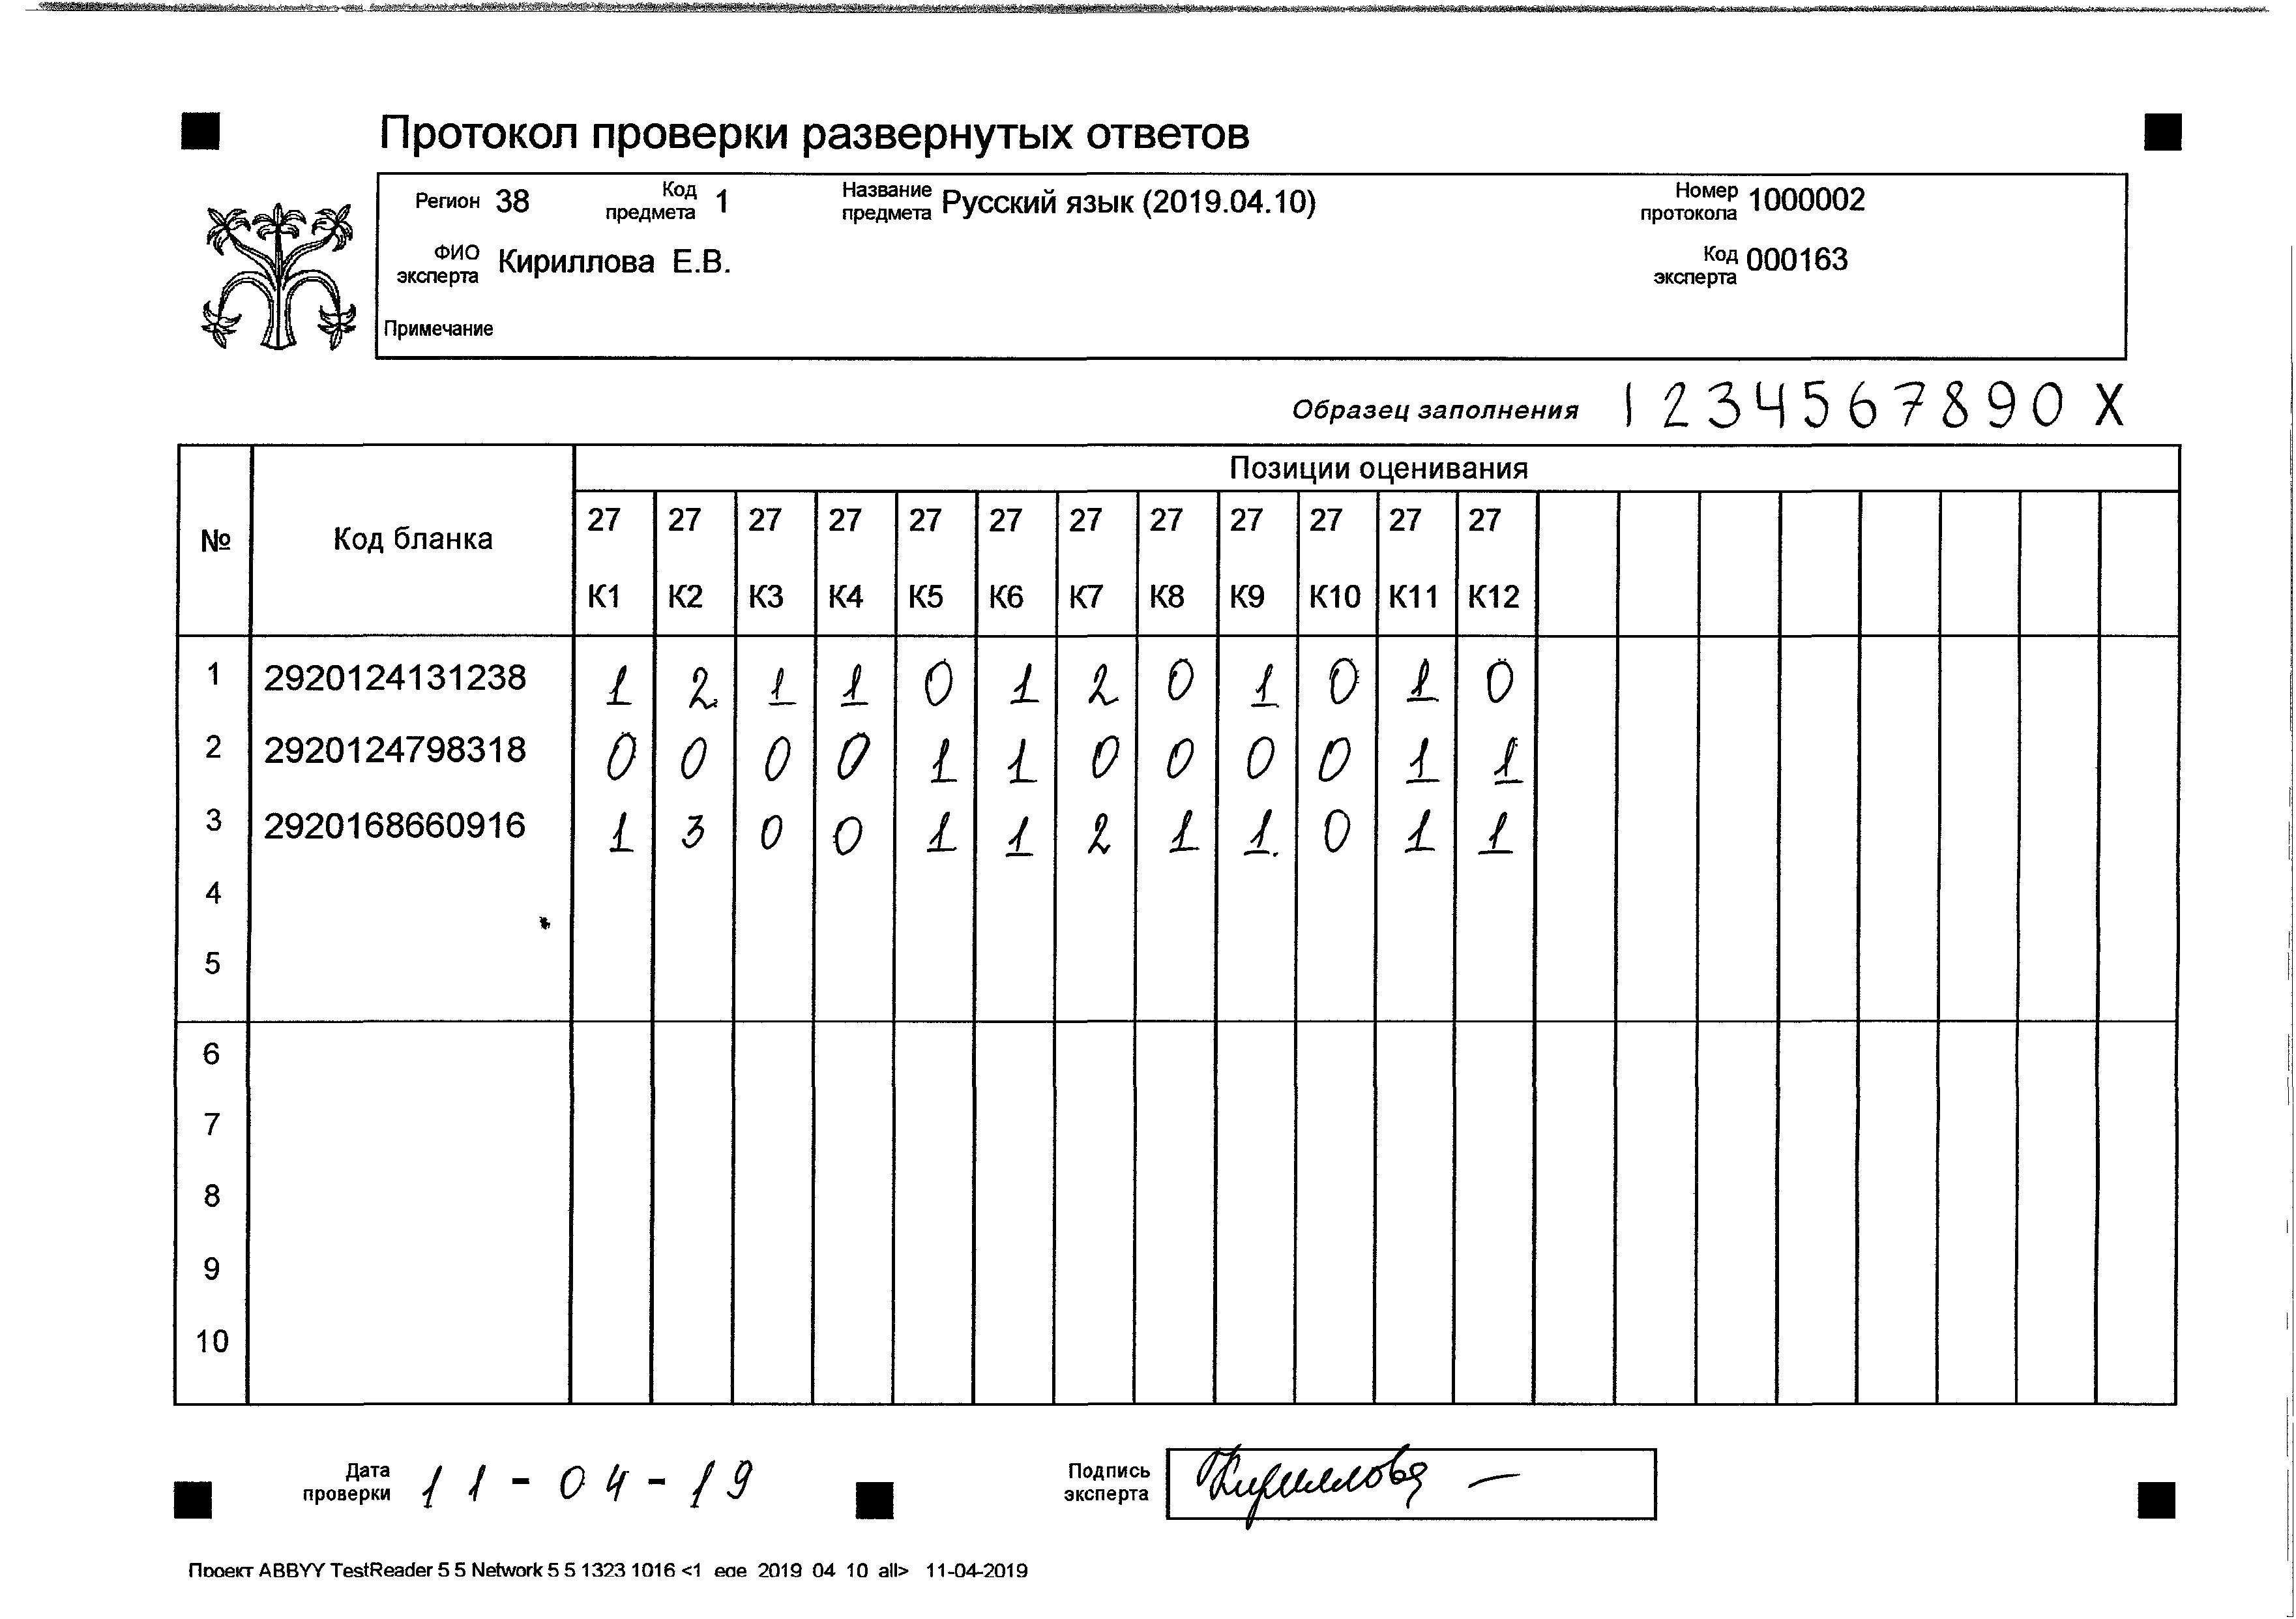 Протокол проверки развернутых ответов
Регион 38 Код предмета 1 Название предмета Русский язык (2019.04.10) Номер протокола 1000002
ФИО эксперта Кириллова Е.В. Код эксперта 000163
Примечание
Образец заполнения 1 2 3 4 5 6 7 8 9 0 X
Позиции оценивания
№ Код бланка
27 27 27 27 27 27 27 27 27 27 27 27
К1 К2 К3 К4 К5 К6 К7 К8 К9 К10 К11 К12
1 2920124131238 1 2 1 1 0 1 2 0 1 0 1 0
2 2920124798318 0 0 0 0 1 1 0 0 0 0 1 1
3 2920168660916 1 3 0 0 1 1 2 1 1 0 1 1
4
5
6
7
8
9
10
Дата проверки 11-04-19 Подпись эксперта Кириллова
Проект ABBYY TestReader 5 5 Network 5 5 1323 1016 <1 ege 2019 04 10 all> 11-04-2019